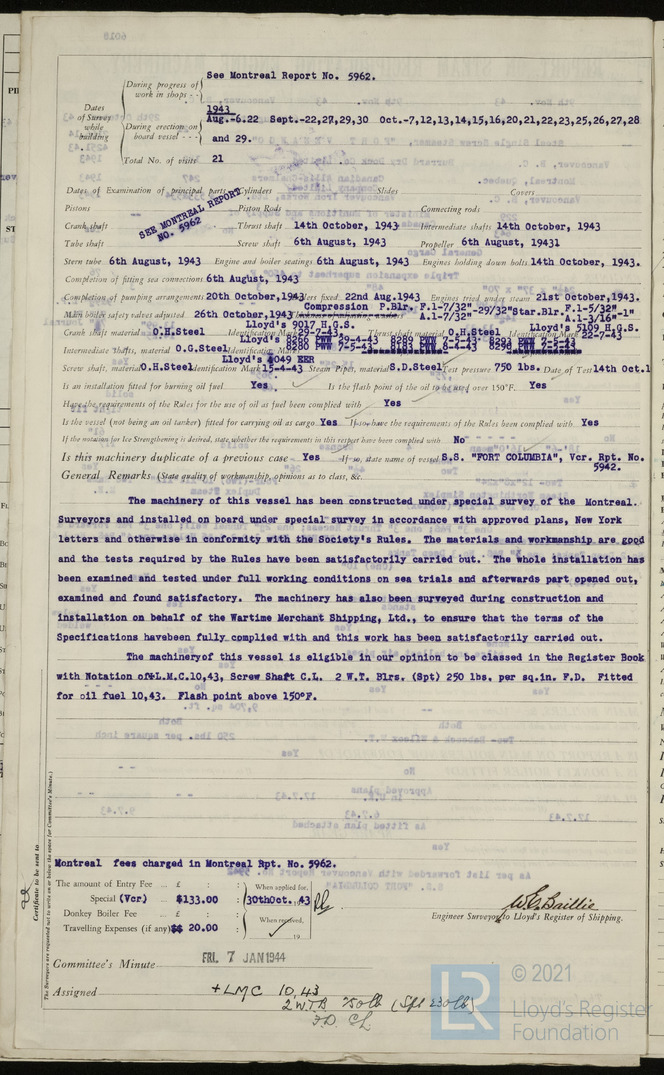 See Montreal Report No. 5962.
Dates of Survey while building
During progress of work in shops - -
1943
During erection on board vessel - - -
Aug.-6.22 Sept.-22,27,29,30 Oct.-7,12,13,14,15,16,20,21,22,23,25,26,27,28
and 29.
Total No. of visits 21
Dates of Examination of principal parts Cylinders Slides Covers
SEE MONTREAL REPORT NO. 5962
Pistons Piston Rods Connecting rods
Crank shaft Thrust shaft 14th October, 1943 Intermediate shafts 14th October, 1943
Tube shaft Screw shaft 6th August, 1943 Propeller 6th August, 19431
Stern tube 6th August, 1943 Engine and boiler seatings 6th August, 1943 Engines holding down bolts 14th October, 1943.
Completion of fitting sea connections 6th August, 1943
Completion of pumping arrangements 20th October,1943 Boilers fixed 22nd Aug.1943 Engines tried under steam 21st October,1943.
Compression P.Blr. F.1-7/32"-29/32" Star.Blr.F.1-5/32"
A.1-7/32" A.1-3/16"-1"
Main boiler safety valves adjusted 26th October,1943
Lloyd's 9017 H.G.S. Lloyd's 5109 H.G.S.
Crank shaft material O.H.Steel Identification Mark 29-7-43. Thrust shaft material O.H.Steel Identification Mark 22-7-43
Lloyd's 8266 PWW 29-4-43 8289 PWW 7-5-43 8293 PWW 7-5-43
Intermediate shafts, material O.G.Steel Identification Marks 8280 PWW 7-5-43 8133 PWW 8-4-43 8296
Lloyd's 4049 EER
Screw shaft, material O.H.Steel Identification Mark 15-4-43 Steam Pipes, material S.D.Steel Test pressure 750 lbs. Date of Test 14th Oct.1
Is an installation fitted for burning oil fuel Yes Is the flash point of the oil to be used over 150°F. Yes
Have the requirements of the Rules for the use of oil as fuel been complied with Yes
Is the vessel (not being an oil tanker) fitted for carrying oil as cargo Yes If so, have the requirements of the Rules been complied with Yes
If the notation for Ice Strengthening is desired, state whether the requirements in this respect have been complied with No
Is this machinery duplicate of a previous case Yes If so, state name of vessel S.S. "FORT COLUMBIA", Vcr. Rpt. No.
5942.
General Remarks (State quality of workmanship, opinions as to class, &c.
The machinery of this vessel has been constructed under special survey of the Montreal.
Surveyors and installed on board under special survey in accordance with approved plans, New York
letters and otherwise in conformity with the Society's Rules. The materials and workmanship are good
and the tests required by the Rules have been satisfactorily carried out. The whole installation has
been examined and tested under full working conditions on sea trials and afterwards part opened out,
examined and found satisfactory. The machinery has also been surveyed during construction and
installation on behalf of the Wartime Merchant Shipping, Ltd., to ensure that the terms of the
Specifications havebeen fully complied with and this work has been satisfactorily carried out.
The machineryof this vessel is eligible in our opinion to be classed in the Register Book
with Notation of +L.M.C.10,43, Screw Shaft C.L. 2 W.T. Blrs. (Spt) 250 lbs. per sq.in. F.D. Fitted
for oil fuel 10,43. Flash point above 150°F.
Certificate to be sent to
The Surveyors are requested not to write on or below the space for Committee's Minute.
Montreal fees charged in Montreal Rpt. No. 5962.
The amount of Entry Fee ... £ : :
When applied for,
Special (Vcr) $133.00 : 30thOct. 43
Donkey Boiler Fee ... £ : :
When received,
Travelling Expenses (if any) $ 20.00 : 19
W.E. Baillie
Engineer Surveyor to Lloyd's Register of Shipping.
Committee's Minute FRI. 7 JAN 1944
Assigned +LMC 10.43
2 WTB 250 lb (Spt 230 lb)
FD CL
LR © 2021
Lloyd's Register
Foundation